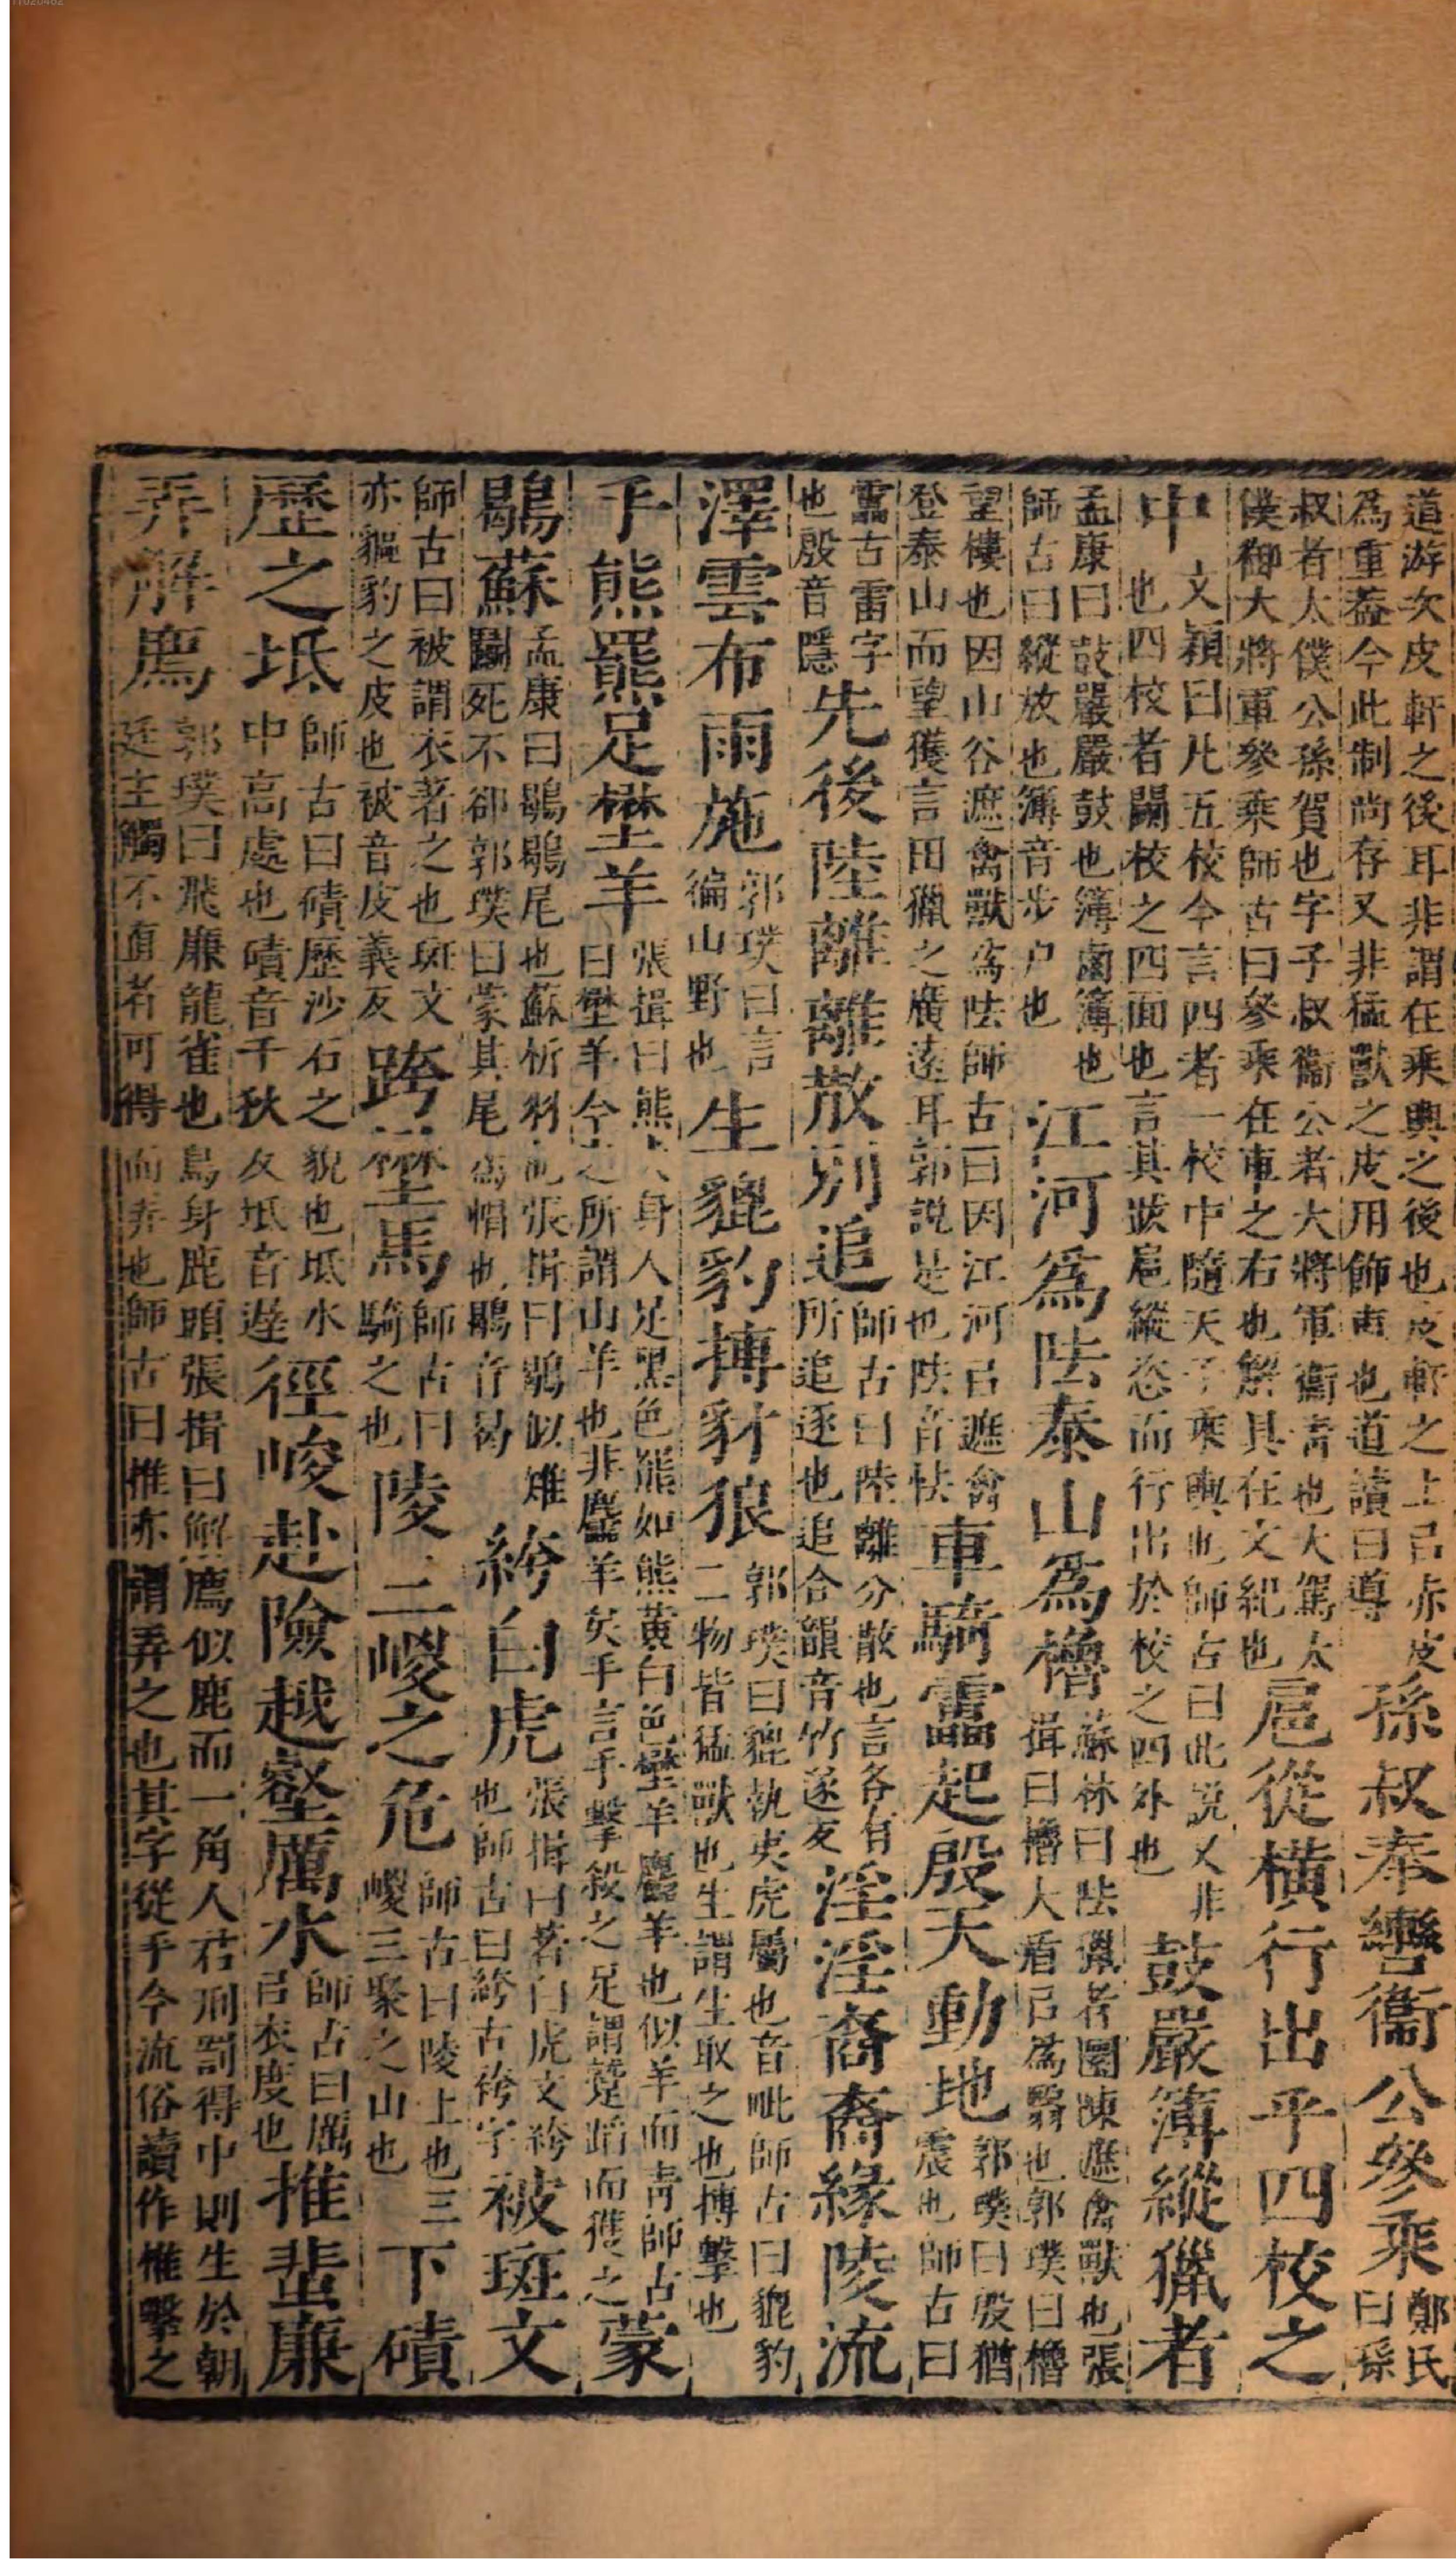 道游次皮軒之後耳非謂在乘輿之後也皮軒之上㠯赤皮
為重葢今此制尚存又非猛獸之皮用飾車也道讀曰導
孫叔奉轡衞公參乘
鄭氏
曰孫
叔者太僕公孫賀也字子叔衞公者大將軍衞青也大駕太
僕御大將軍參乘師古曰參乘在車之右也解具在文紀也
扈從橫行出乎四校之
中
文穎曰凡五校今言四者一校中隨天子乘輿也師古曰此說又非
也四校者闌校之四面也言其跋扈縱恣而行出於校之四外也
鼓嚴簿縱獵者
孟康曰鼓嚴嚴鼓也簿鹵簿也
師古曰縱放也簿音步戶也
江河為阹泰山為櫓
蘇林曰阹獵者圜陳遮禽獸也張
揖曰櫓大盾㠯為翳也郭璞曰櫓
望樓也因山谷遮禽獸為阹師古曰因江河㠯遮禽
登泰山而望獲言田獵之廣遠耳郭說是也阹音怯
車騎靁起殷天動地
郭璞曰殷猶
震也師古曰
靁古雷字
也殷音隱
先後陸離離散別追
師古曰陸離分散也言各有
所追逐也追合韻音竹遂反
淫淫裔裔緣陵流
澤雲布雨施
郭璞曰言
徧山野也
生貔豹搏豺狼
郭璞曰貔執夷虎屬也音毗師古曰貔豹
二物皆猛獸也生謂生取之也搏擊也
手熊羆足壄羊
張揖曰熊犬身人足黑色羆如熊黃白色壄羊麢羊也似羊而青師古
曰壄羊今之所謂山羊也非麢羊矣手言手擊殺之足謂蹵蹈而獲之
蒙
鶡蘇
孟康曰鶡鶡尾也蘇析羽也張揖曰鶡似雉
鬬死不卻郭璞曰蒙其尾為帽也鶡音曷
絝白虎
張揖曰著白虎文絝
也師古曰絝古袴字
被斑文
師古曰被謂衣著之也斑文
亦貙豹之皮也被音皮義反
跨壄馬
師古曰
騎之也
陵三嵕之危
師古曰陵上也三
嵕三聚之山也
下磧
歷之坻
師古曰磧歷沙石之貌也坻水
中高處也磧音千狄反坻音遲
徑峻赴險越壑厲水
師古曰厲
㠯衣度也
推蜚廉
弄解廌
郭璞曰飛廉龍雀也鳥身鹿頭張揖曰解廌似鹿而一角人君刑罰得中則生於朝
廷主觸不直者可得而弄也師古曰推亦謂弄之也其字從手今流俗讀作椎擊之